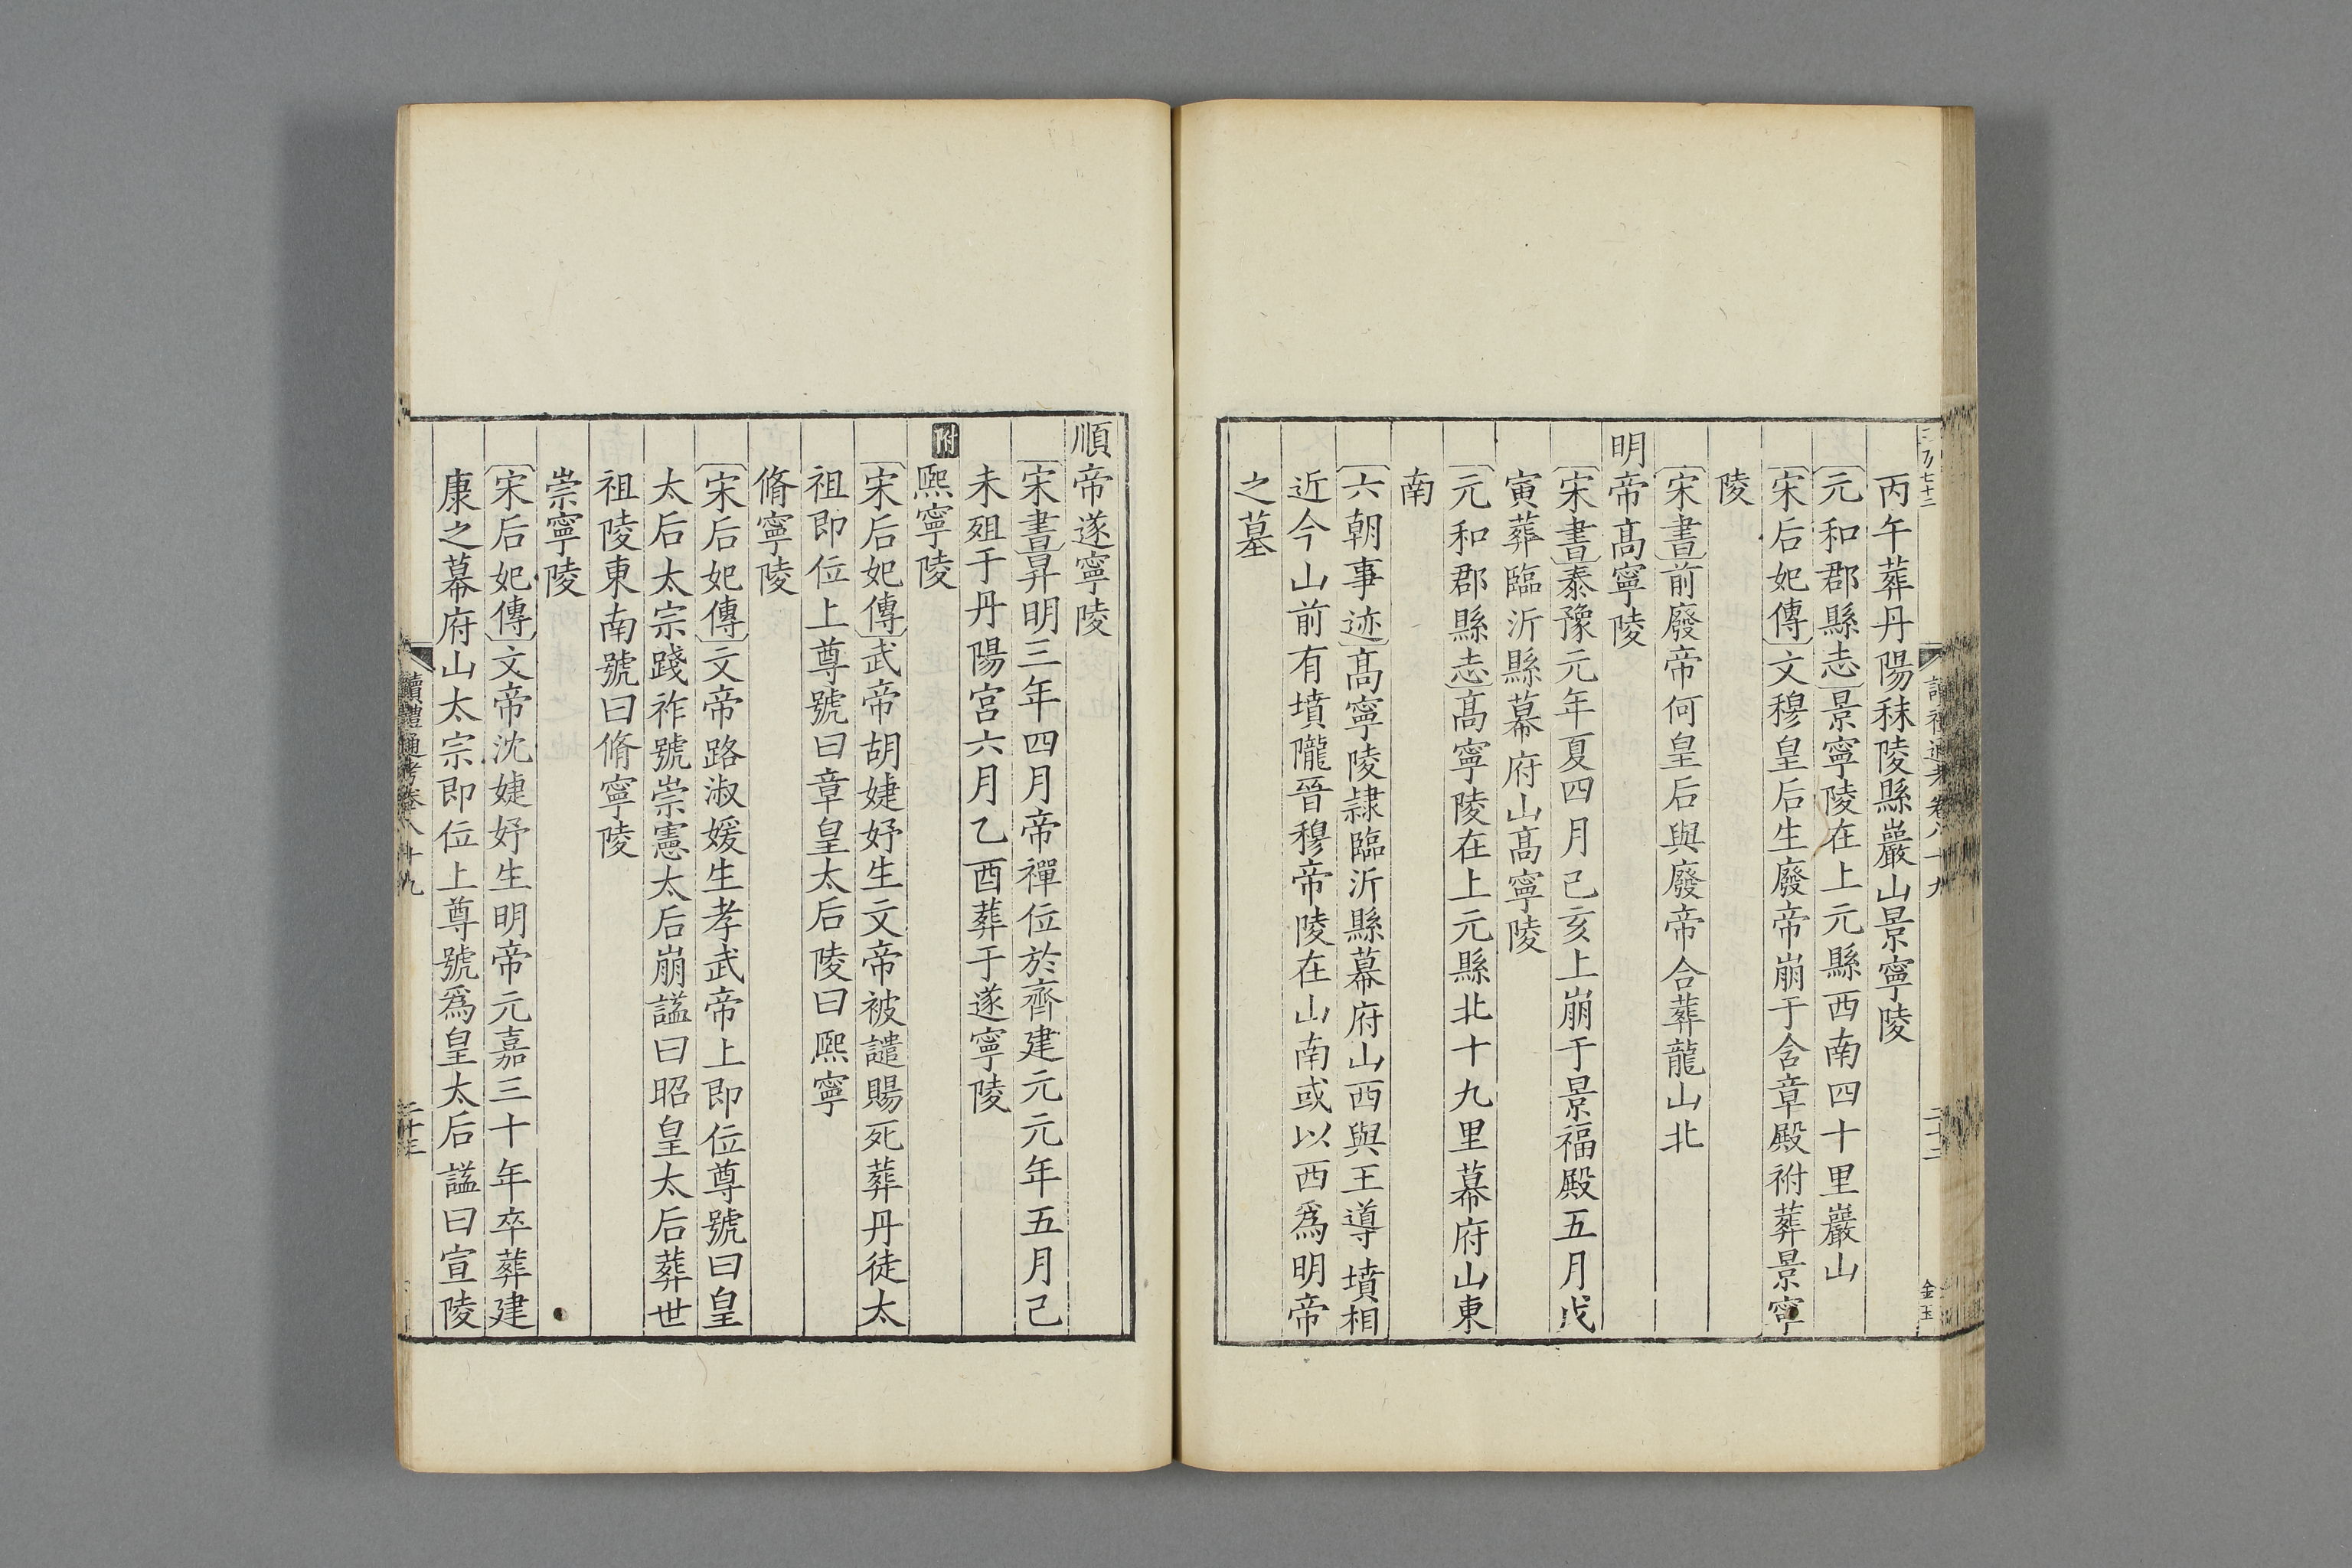 丙午葬丹陽秣陵縣巖山景寧陵
〔元和郡縣志〕景寧陵在上元縣西南四十里巖山
〔宋后妃傳〕文穆皇后生廢帝崩于含章殿祔葬景寧
陵
〔宋書〕前廢帝何皇后與廢帝合葬龍山北
明帝高寧陵
〔宋書〕泰豫元年夏四月己亥上崩于景福殿五月戊
寅葬臨沂縣幕府山高寧陵
〔元和郡縣志〕高寧陵在上元縣北十九里幕府山東
南
〔六朝事迹〕高寧陵隷臨沂縣幕府山西與王導墳相
近今山前有墳隴晉穆帝陵在山南或以西爲明帝
之墓
順帝遂寧陵
〔宋書〕昇明三年四月帝禪位於齊建元元年五月己
未殂于丹陽宮六月乙酉葬于遂寧陵
附 熈寧陵
〔宋后妃傳〕武帝胡婕妤生文帝被譴賜死葬丹徒太
祖即位上尊號曰章皇太后陵曰熈寧
脩寧陵
〔宋后妃傳〕文帝路淑媛生孝武帝上即位尊號曰皇
太后太宗踐祚號崇憲太后崩諡曰昭皇太后葬世
祖陵東南號曰脩寧陵
崇寧陵
〔宋后妃傳〕文帝沈婕妤生明帝元嘉三十年卒葬建
康之幕府山太宗即位上尊號爲皇太后諡曰宣陵
讀禮通考卷八十九
二十三